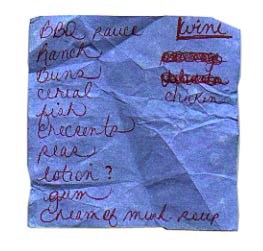 BBQ sauce
Ranch
Buns
cereal
fish
Crescents
peas
lotion?
gum
Cream of mush. soup
Wine
sausage
chicken